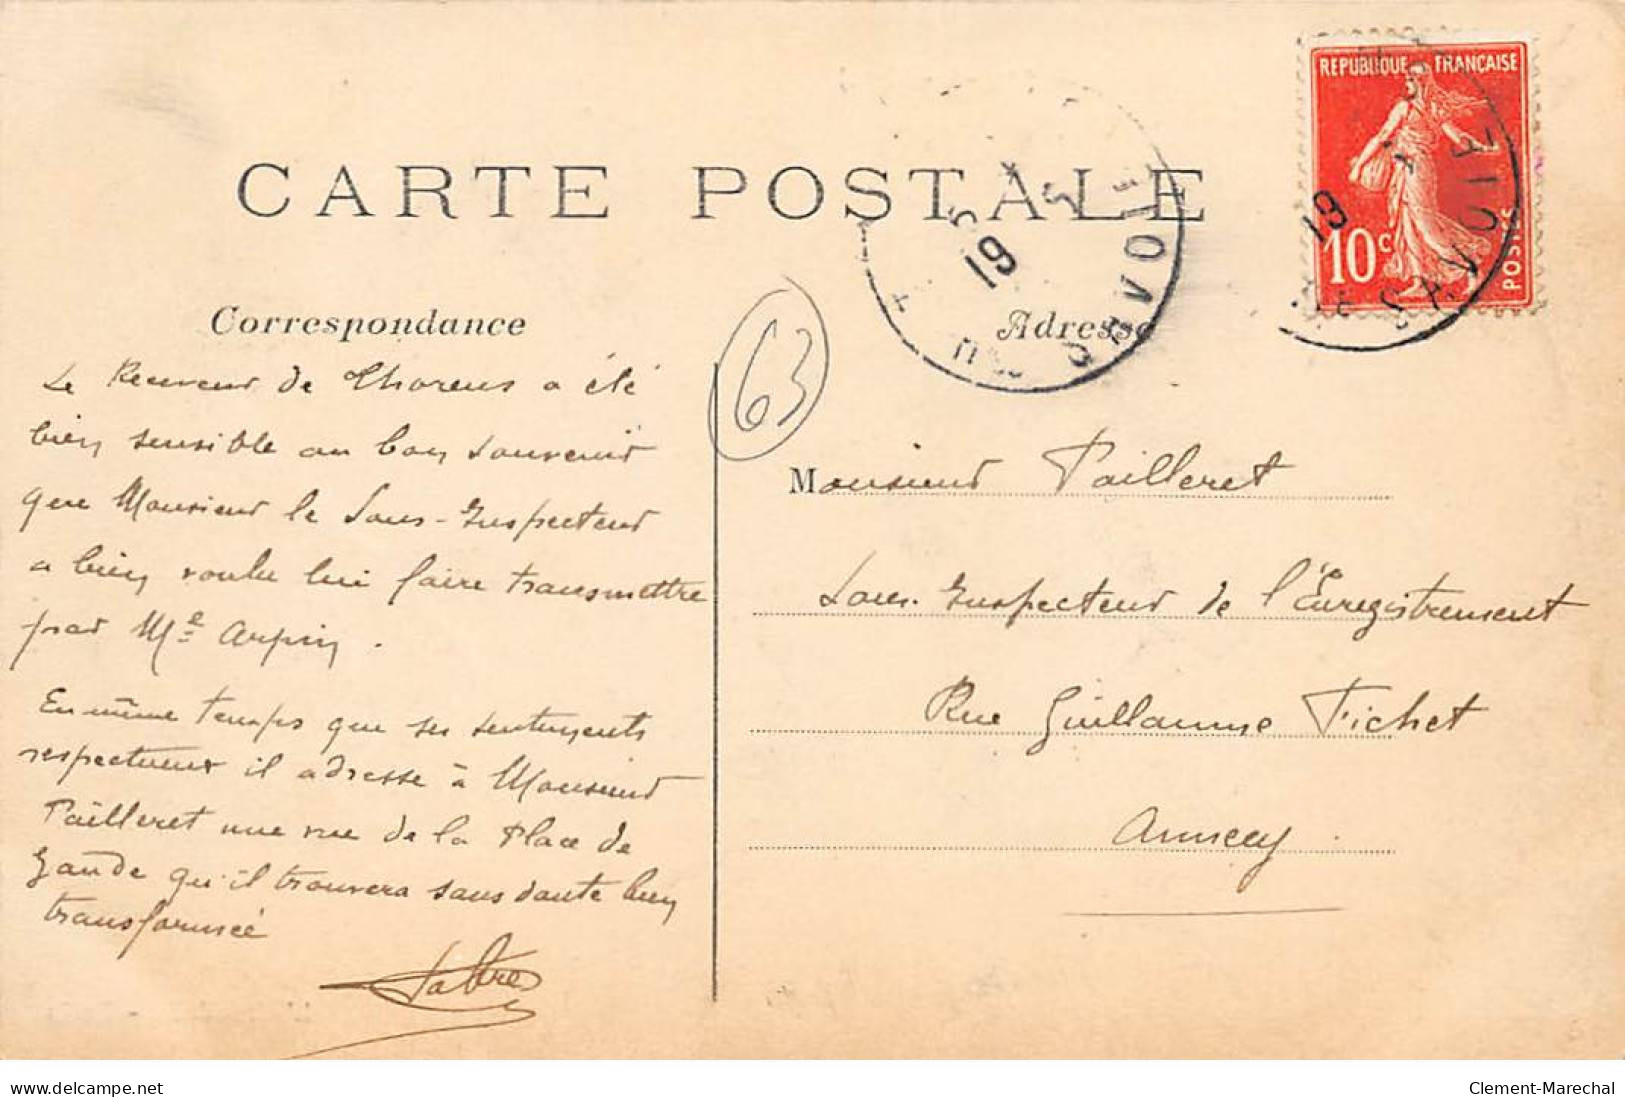 CARTE POSTALE
REPUBLIQUE FRANÇAISE
10c
POSTES
19
19
Correspondance
Adresse
63
Le Receveur de Thorens a été
bien sensible au bon souvenir
que Monsieur le Sous-Inspecteur
a bien voulu lui faire transmettre
par Me Arpin.
En même temps que ses sentiments
respectueux il adresse à Monsieur
Pailleret une vue de la Place de
qu'il trouvera sans doute bien
transformée
Fabre
Monsieur Pailleret
Sous-Inspecteur de l'Enregistrement
Rue Guillaume Fichet
Annecy.
www.delcampe.net
Clement-Marechal